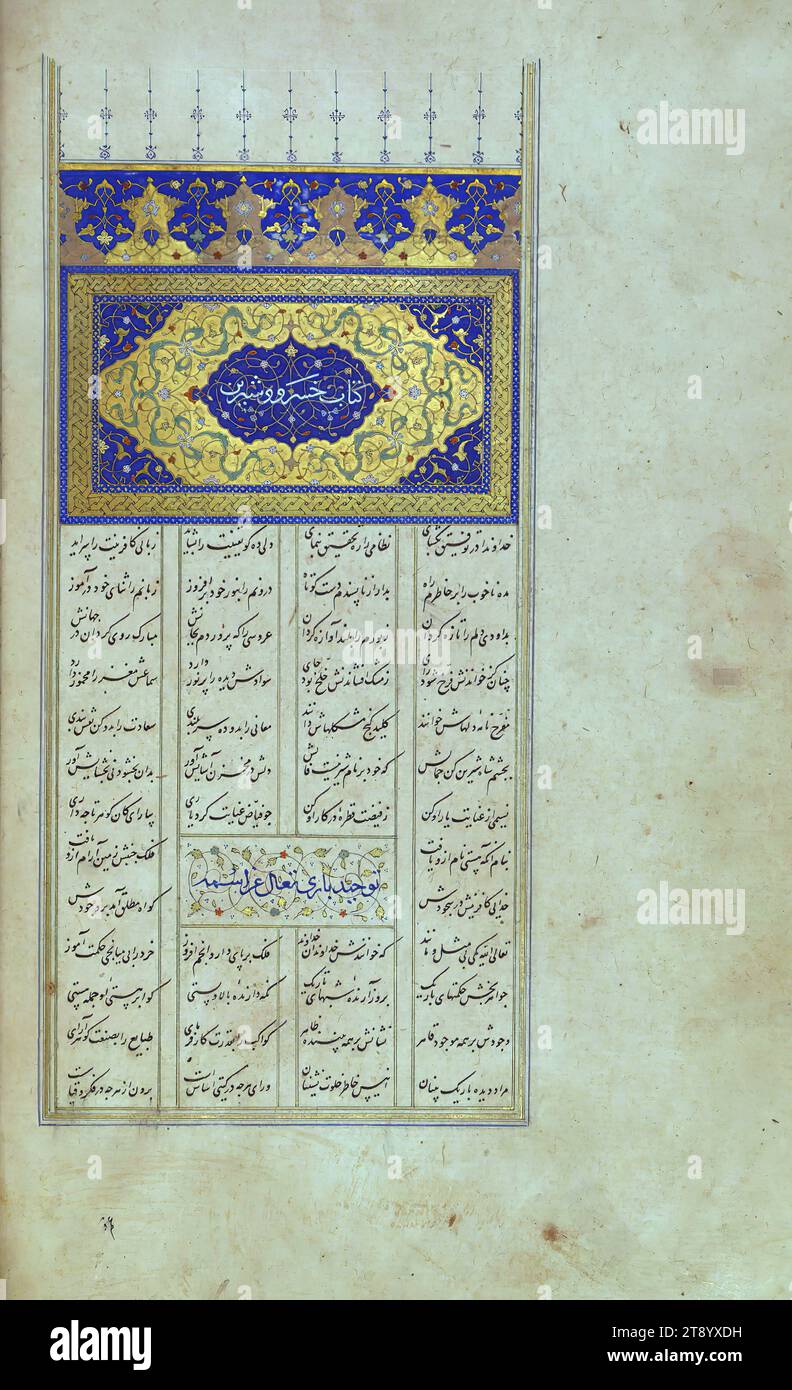 کتاب خسرو و شیرین
خداوندا در توفیق بگشای نظامی را ره تحقیق بنمای دلی ده کو یقینت را بشاید زبانی کافرینت را سراید
مده ناخوب را بر خاطرم راه بدار از ناپسندم دست کوتاه درونم را بنور خود برافروز زبانم را ثنای خود درآموز
بداودی دلم را تازه گردان زبورم را بلند آوازه گردان عروسی را که پروردم بجانش مبارک روی گردان در جهانش
چنان کز خواندنش فرخ شود رای ز مشک افشاندنش خلخ بود جای سوادش دیده را پر نور دارد سماعش مغز را مخمور دارد
مفرح نامه دلهاش خوانند کلید گنج مشکلهاش دانند معانی را بدو ده سربلندی سعادت را بدو کن نقش بندی
بچشم شاه شیرین کن جمالش که خود بر نام شیرینست فالش دلش در مخزن آسایش آور بدان بخشودنی بخشایش آور
نسیمی از عنایت یار او کن ز فیضت قطره در کار او کن چو فیاض عنایت کرد یاری بیا ای کان گوهر تا چه داری
توحید باری تعالی عز اسمه
بنام آنکه هستی نام ازو یافت فلک جنبش زمین آرام ازو یافت
خدایی کافرینش در سجودش گواه مطلق آمد بر وجودش
تعالی الله یکی بی مثل و مانند که خوانندش خداوندان خداوند فلک بر پای دار و انجم افروز خرد را بی میانجی حکمت آموز
جواهر بخش حکمتهای باریک بروز آرنده شبهای تاریک نگه دارنده بالا و پستی گوا بر هستی او جمله هستی
وجودش بر همه موجود قاهر نشانش بر همه بیننده ظاهر کواکب را بقدرت کارفرمای طبایع را بصنعت گوهرآرای
مراد دیده باریک بینان انیس خاطر خلوت نشینان ورای هرچه در گیتی اساسیست برون از هرچه در فکرت قیاسیست
alamy
alamy
alamy
a
a
a
alamy
Image ID: 2T8YXDH
www.alamy.com